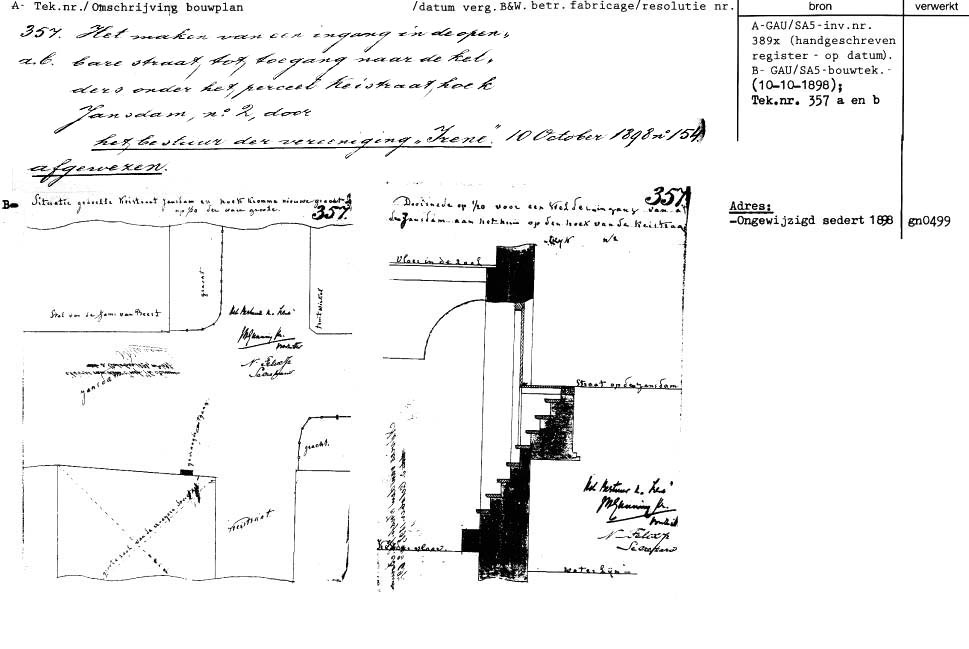 A- Tek.nr./Omschrijving bouwplan /datum verg.B&W. betr. fabricage/resolutie nr. bron verwerkt
357. Het maken van een ingang in de open,
a.b. bare straat, tot, toegang naar de kel,
ders onder het, perceel Keistraat, hoek
Jansdam, no. 2, door
het, bestuur der vereeniging „Irene". 10 October 1898 no 154.
afgewezen.
A-GAU/SA5-inv.nr.
389x (handgeschreven
register - op datum).
B- GAU/SA5-bouwtek.-
(10-10-1898);
Tek.nr. 357 a en b
Adres:
-Ongewijzigd sedert 1898 gn0499
B-
Situatie gedeelte Keistraat Jansdam en hoek Kromme nieuwe gracht
op der ware grootte.
357.
gracht
Stal van de
Jansdam
gracht.
Keistraat
357
Doorsnede op voor een Kelderingang van a
de Jansdam aan het huis op den hoek van de Keistraat
Vloer in de zaal
Straat op de Jansdam
Het Bestuur v. Irene
Secretaris
vloer
waterlijn